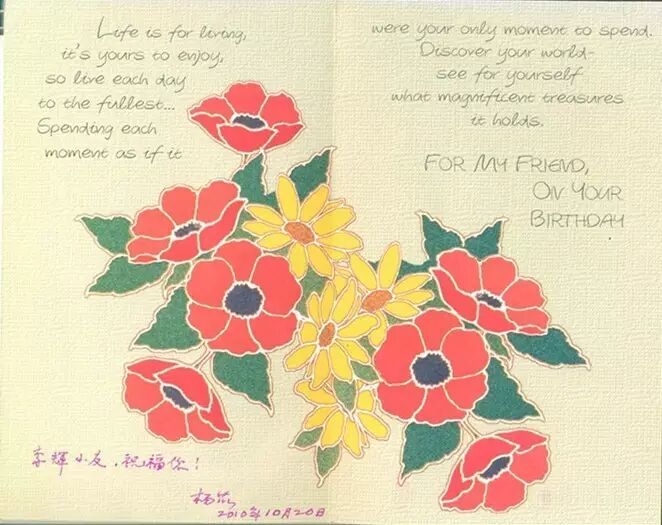 Life is for living,
it's yours to enjoy,
so live each day
to the fullest...
Spending each
moment as if it
were your only moment to spend.
Discover your world-
see for yourself
what magnificent treasures
it holds.
FOR MY FRIEND,
ON YOUR
BIRTHDAY
李辉小友，祝福你！
杨苡
2010年10月20日